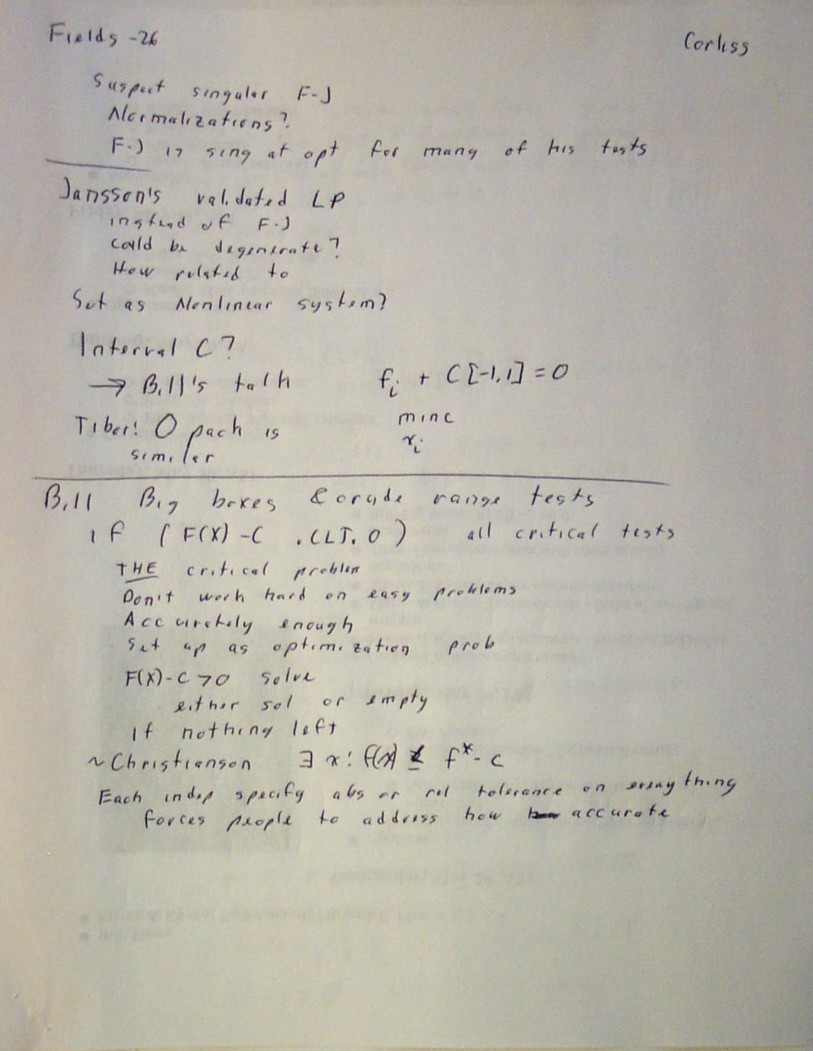 Fields -26 Corliss
Suspect singular F-J
Normalizations?
F-J is sing at opt for many of his tests
Jansson's validated LP
instead of F-J
Could be degenerate?
How related to
Set as Nonlinear system?
Interval C?
→ Bill's talk fᵢ + C[-1,1] = 0
Tiber! O pack is min c
similar xᵢ
Bill Big boxes & crude range tests
if (F(X) - C .LT. 0) all critical tests
THE critical problem
Don't work hard on easy problems
Accurately enough
Set up as optimization prob
F(X)-C > 0 solve
either sol or empty
If nothing left
~ Christianson ∃ x: f(x) ≤ f* - c
Each indep specify abs or rel tolerance on everything
forces people to address how accurate